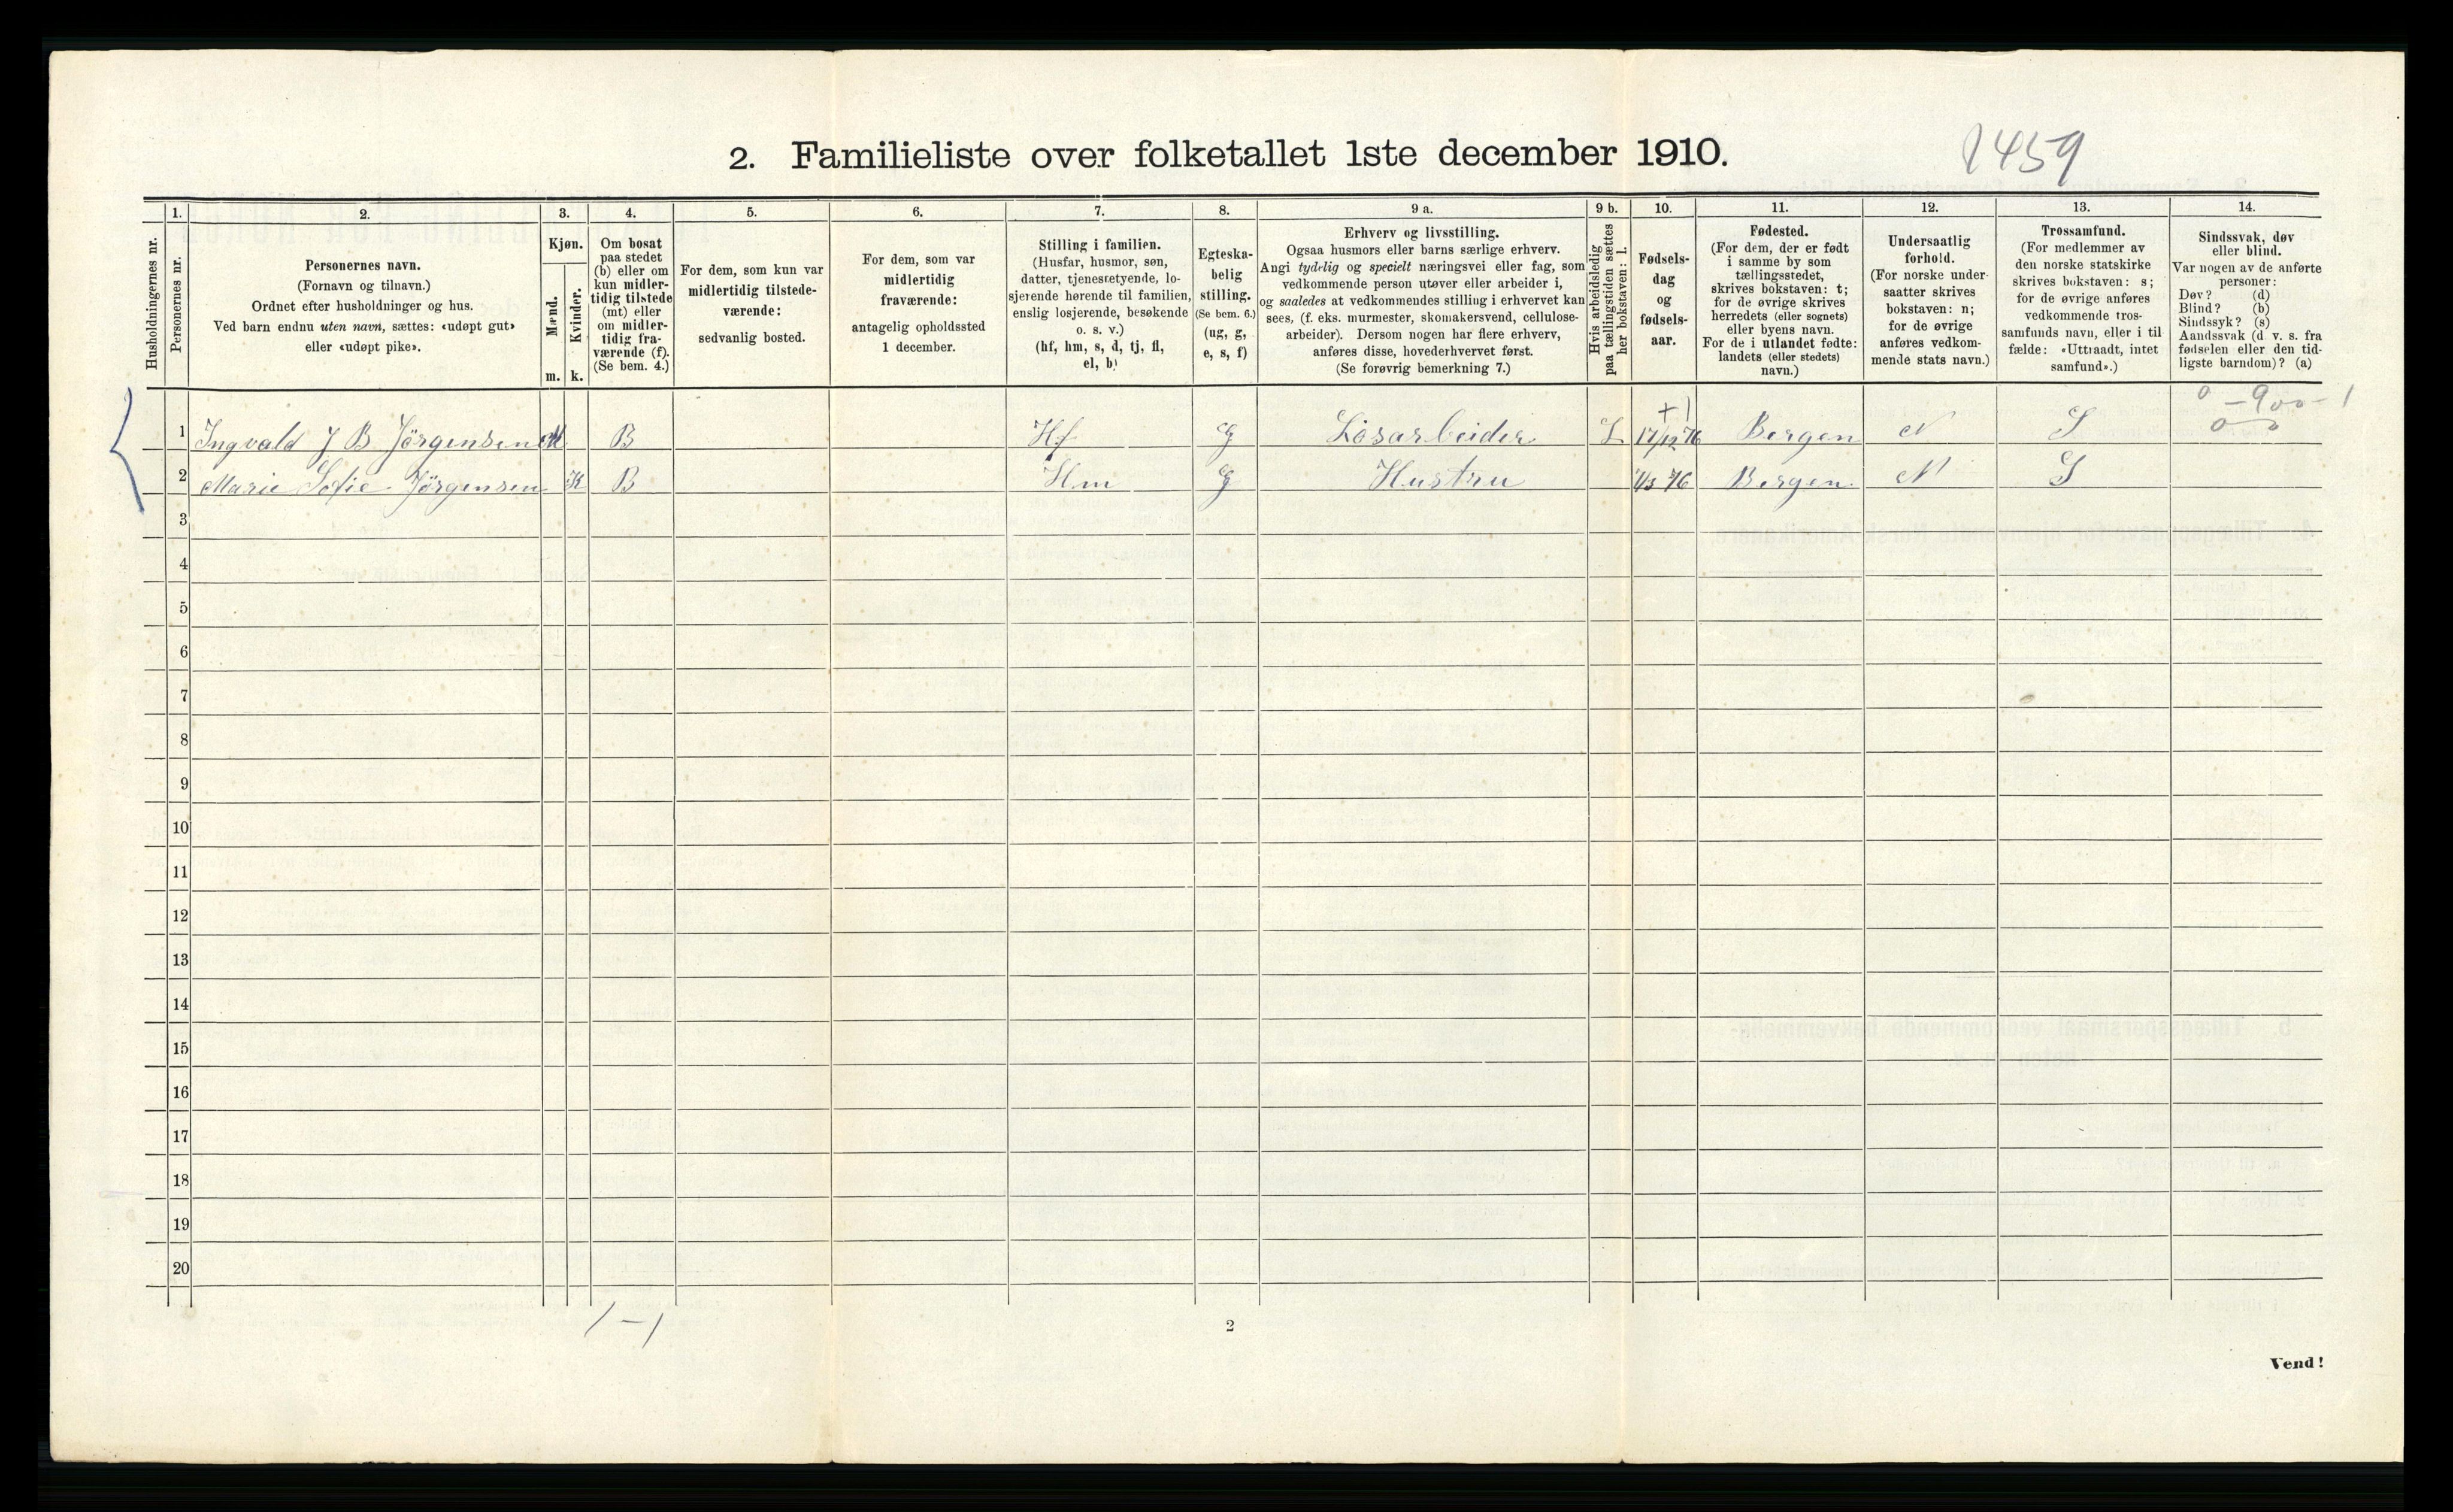 2. Familieliste over folketallet 1ste december 1910.
1459
1. 2. 3. 4. 5. 6. 7. 8. 9 a. 9 b. 10. 11. 12. 13. 14.
Husholdningernes nr.
Personernes nr.
Personernes navn.
(Fornavn og tilnavn.)
Ordnet efter husholdninger og hus.
Ved barn endnu uten navn, sættes: «udøpt gut»
eller «udøpt pike».
Kjøn.
Mænd.
Kvinder.
m. k.
Om bosat
paa stedet
(b) eller om
kun midler-
tidig tilstede
(mt) eller
om midler-
tidig fra-
værende (f).
(Se bem. 4.)
For dem, som kun var
midlertidig tilstede-
værende:
sedvanlig bosted.
For dem, som var
midlertidig
fraværende:
antagelig opholdssted
1 december.
Stilling i familien.
(Husfar, husmor, søn,
datter, tjenestetyende, lo-
sjerende hørende til familien,
enslig losjerende, besøkende
o. s. v.)
(hf, hm, s, d, tj, fl,
el, b)
Egteska-
belig
stilling.
(Se bem. 6.)
(ug, g,
e, s, f)
Erhverv og livsstilling.
Ogsaa husmors eller barns særlige erhverv.
Angi tydelig og specielt næringsvei eller fag, som
vedkommende person utøver eller arbeider i,
og saaledes at vedkommendes stilling i erhvervet kan
sees, (f. eks. murmester, skomakersvend, cellulose-
arbeider). Dersom nogen har flere erhverv,
anføres disse, hovederhvervet først.
(Se forøvrig bemerkning 7.)
Hvis arbeidsledig
paa tællingstiden sættes
her bokstaven: l.
Fødsels-
dag
og
fødsels-
aar.
Fødested.
(For dem, der er født
i samme by som
tællingsstedet,
skrives bokstaven: t;
for de øvrige skrives
herredets (eller sognets)
eller byens navn.
For de i utlandet fødte:
landets (eller stedets)
navn.)
Undersaatlig
forhold.
(For norske under-
saatter skrives
bokstaven: n;
for de øvrige
anføres vedkom-
mende stats navn.)
Trossamfund.
(For medlemmer av
den norske statskirke
skrives bokstaven: s;
for de øvrige anføres
vedkommende tros-
samfunds navn, eller i til
fælde: «Uttraadt, intet
samfund».)
Sindssvak, døv
eller blind.
Var nogen av de anførte
personer:
Døv? (d)
Blind? (b)
Sindssyk? (s)
Aandssvak (d. v. s. fra
fødselen eller den tid-
ligste barndom)? (a)
1 Ingvald J B Jörgensen M B Hf G Lösarbeider L 17/12 76 Bergen N S
2 Marie Sofie Jörgensen K B Hm G Hustru 1/3 76 Bergen N S
3
4
5
6
7
8
9
10
11
12
13
14
15
16
17
18
19
20
1-1
2
Vend!